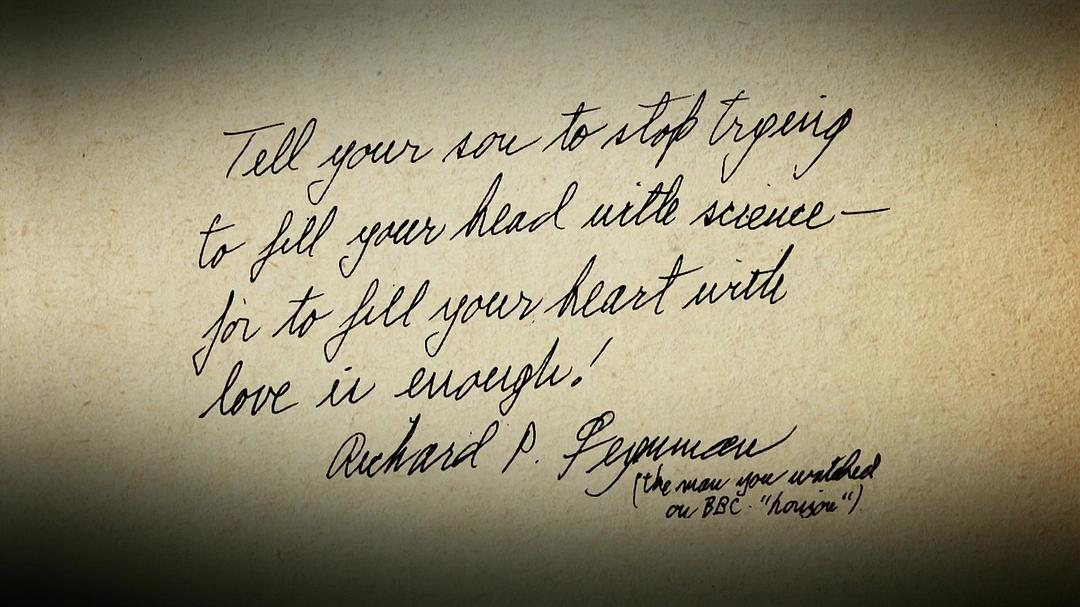 Tell your son to stop trying
to fill your head with science—
for to fill your heart with
love is enough!
Richard P. Feynman
(the man you watched
on BBC "horizon")